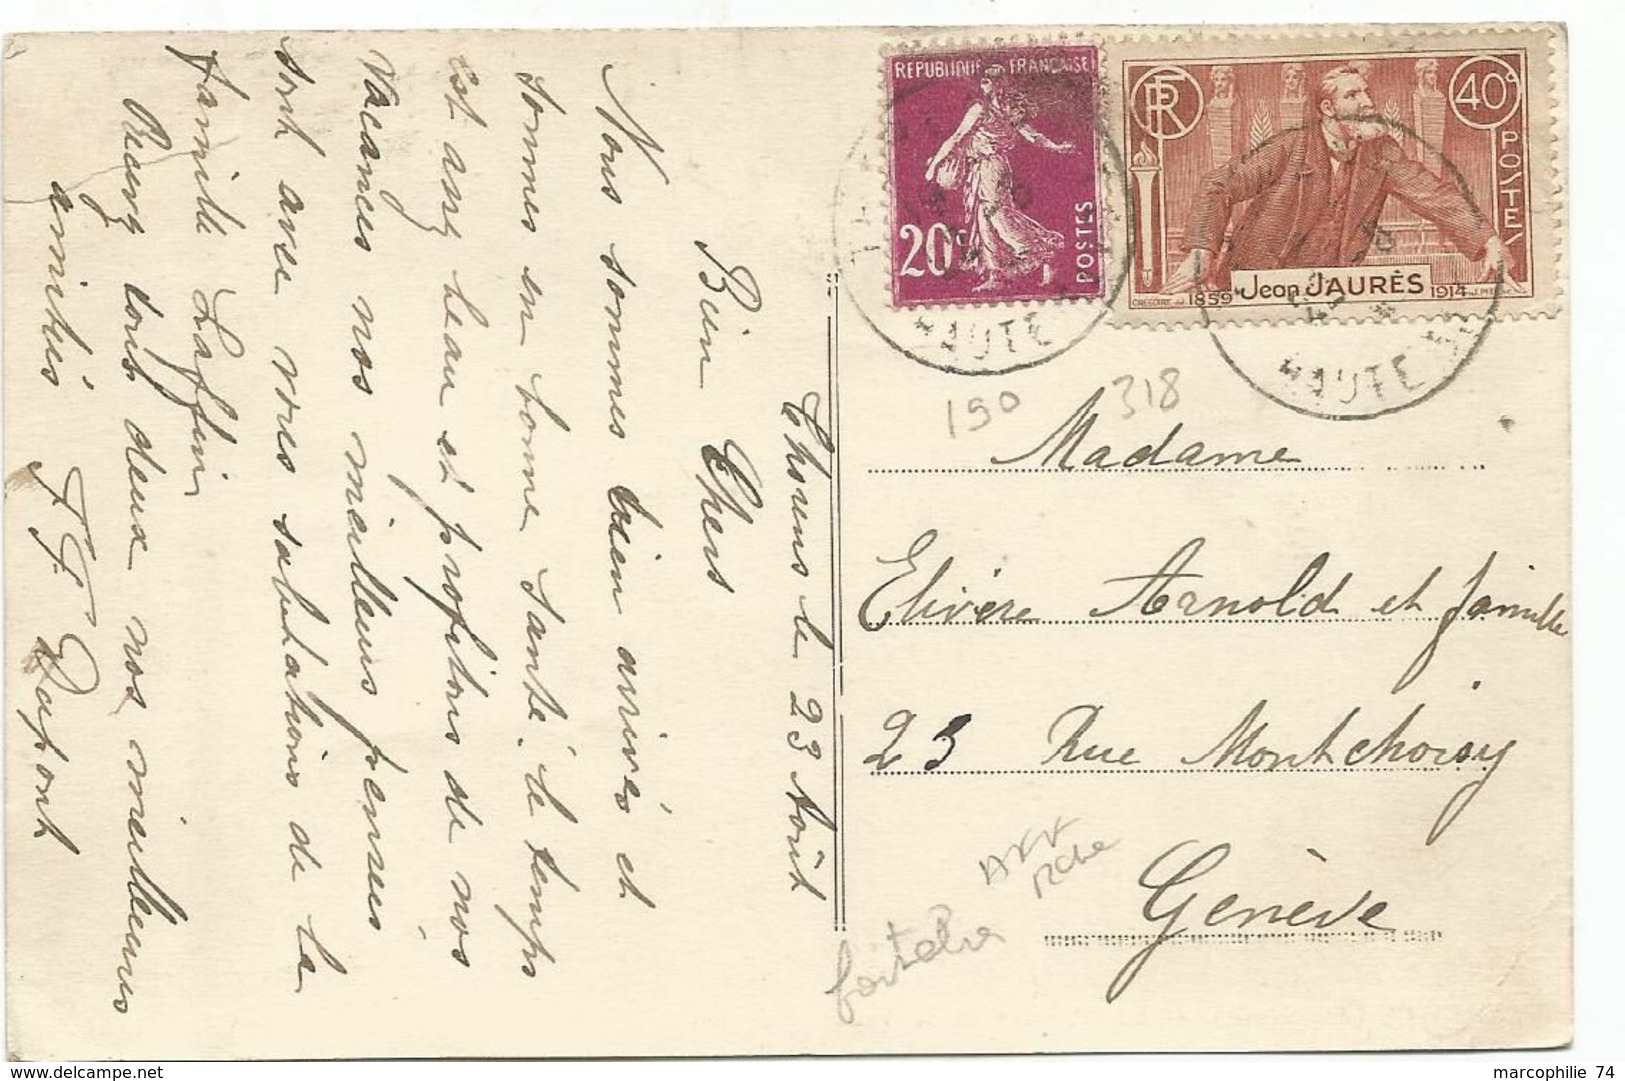 Thorens le 23 Août
Bien Chers
Nous sommes bien arrivés et
sommes en bonne santé. le temps
est assez beau et profitons de nos
vacances nos meilleurs pensées
sont avec vous salutations de la
famille Laffin
Recevez tous deux nos meilleures
amitiés F F Dupont
REPUBLIQUE FRANÇAISE
20c
POSTES
HAUTE
RF
40c
POSTES
1859 Jean JAURÈS 1914
HAUTE
190
318
Madame
Elivère Arnold et famille
23 Rue Montchoisy
Genève
marcophilie 74